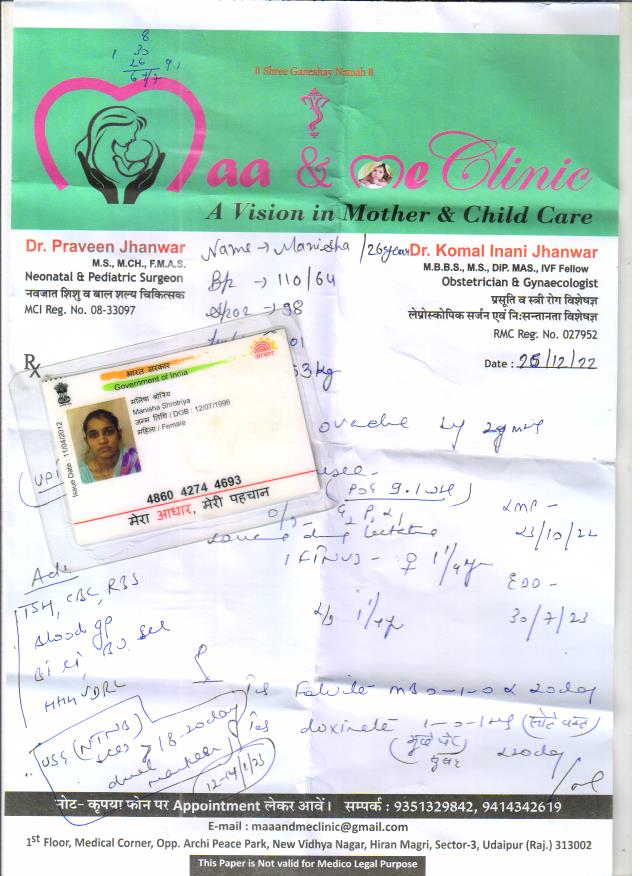 8
1 33
26 9.1
67/7
॥ Shree Ganeshay Namah ॥
Maa & Me Clinic
A Vision in Mother & Child Care
Dr. Praveen Jhanwar
M.S., M.CH., F.M.A.S.
Neonatal & Pediatric Surgeon
नवजात शिशु व बाल शल्य चिकित्सक
MCI Reg. No. 08-33097
Name → Manisha / 26 year
BP → 110/64
SpO2 → 98
Dr. Komal Inani Jhanwar
M.B.B.S., M.S., DIP. MAS., IVF Fellow
Obstetrician & Gynaecologist
प्रसूति व स्त्री रोग विशेषज्ञ
लेप्रोस्कोपिक सर्जन एवं नि:सन्तानता विशेषज्ञ
RMC Reg. No. 027952
Date : 26/12/22
Rx
53 kg
भारत सरकार
Government of India
आधार
मनिषा श्रोत्रिय
Manisha Shrotriya
जन्म तिथि / DOB : 12/07/1996
महिला / Female
Issue Date : 11/04/2012
4860 4274 4693
मेरा आधार, मेरी पहचान
overdue by
UPT
LMP -
23/10/22
during lactation
EDD -
30/7/23
Adv
TSH, CBC, RBS
Blood gp
HIV VDRL
USG (NTNB)
18-20 day
dual marker
12-14/1/23
Folvite
0-1-0 x 20 day
doxinate 1-0-1
x 20 day
नोट- कृपया फोन पर Appointment लेकर आवें। सम्पर्क : 9351329842, 9414342619
E-mail : maaandmeclinic@gmail.com
1st Floor, Medical Corner, Opp. Archi Peace Park, New Vidhya Nagar, Hiran Magri, Sector-3, Udaipur (Raj.) 313002
This Paper is Not valid for Medico Legal Purpose